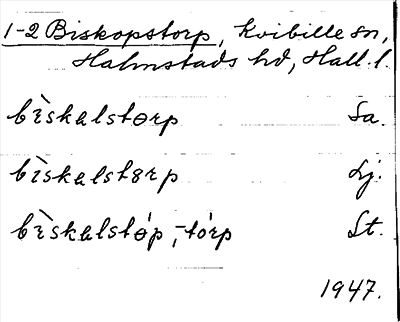 1-2 Biskopstorp, Kvibille sn,
Halmstads hd, Hall. l.
bìskalstɵrp Sa.
bìskalstɵrp Lj.
bìskalstɵ́p, -tɵ́rp St.
1947.